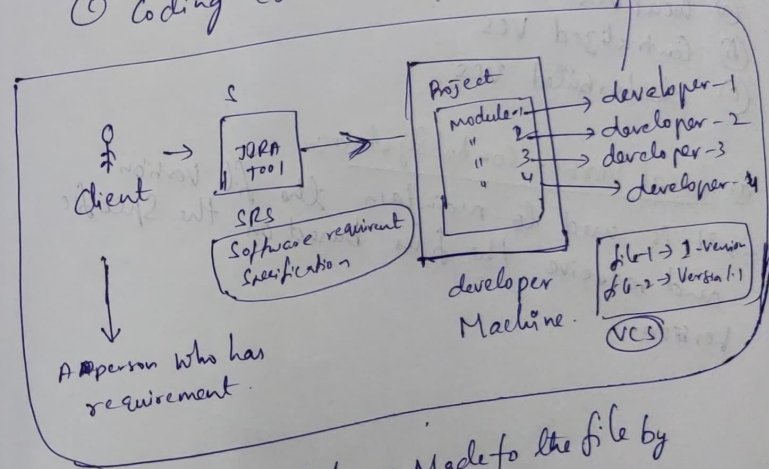 ① Coding
S
Client
JIRA
tool
SRS
Software requirent
Specification
Project
Module-1 → developer-1
" 2 → developer-2
" 3 → developer-3
" 4 → developer-4
developer
Machine.
file-1 → 1-version
file-2 → Version 1.1
VCS
A person who has
requirement.
Made to the file by